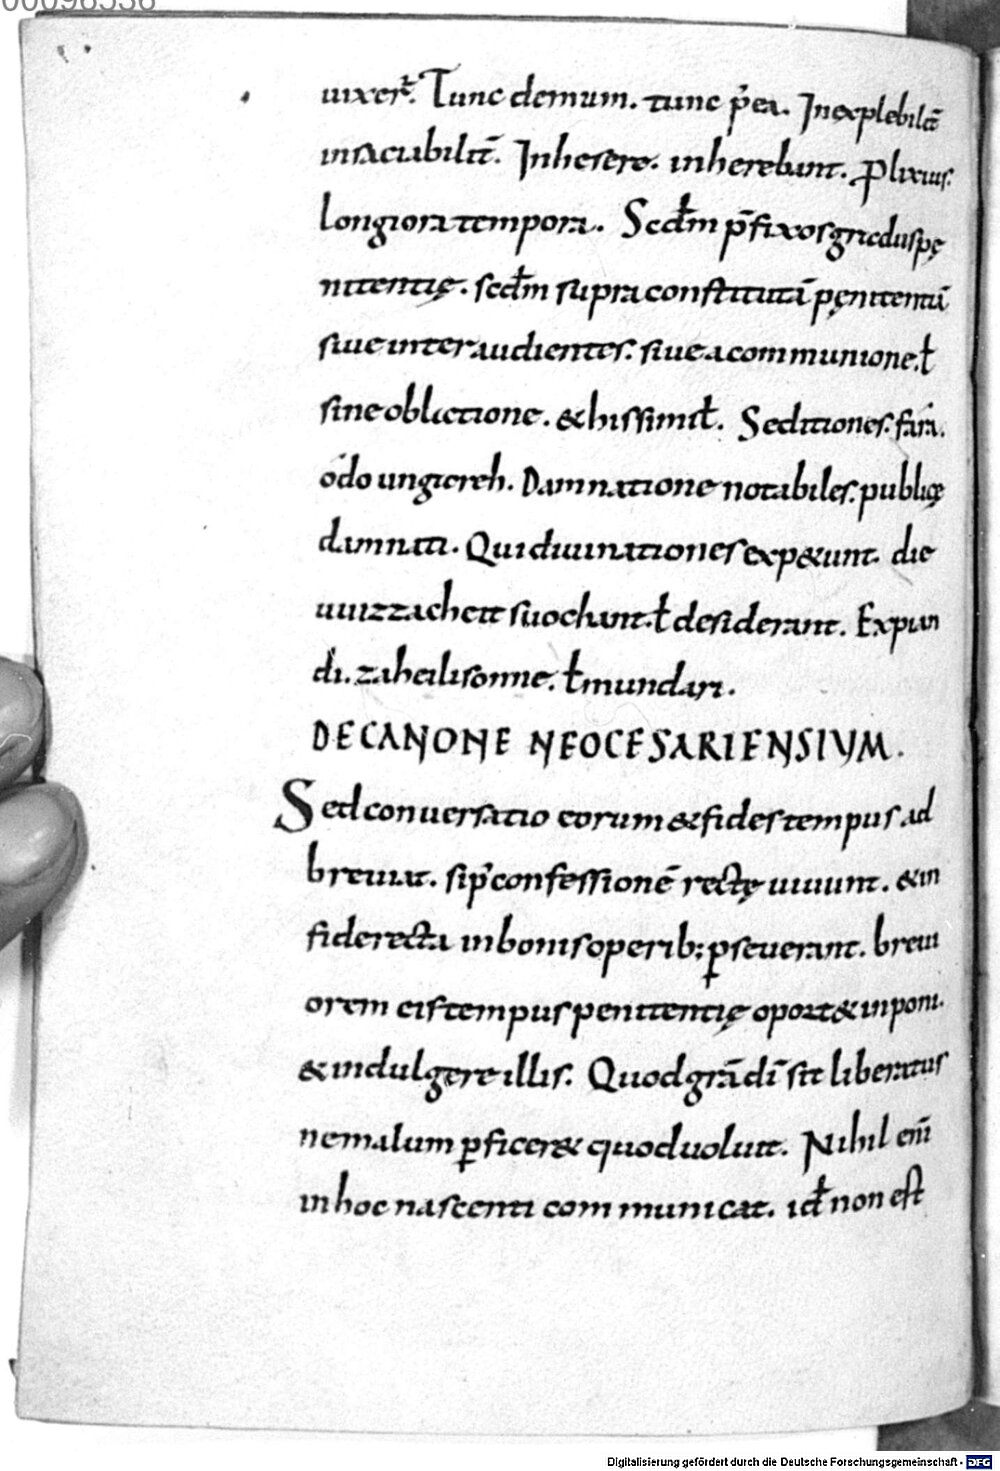 00098536
uixer̄. Tunc demum. tunc p̄ea. Inexplebilit̄
insaciabilit̄. Inhesere. inherebant. Plixius.
longiora tempora. Scdm̄ p̄fixos gradus pę
nitentię. scdm̄ supra constitutā pęnitentiā
siue inter audientes. siue a communione. ł
sine oblatione. & his simił. Seditiones. fára.
ódo ungireh. Damnatione notabiles. publicę
damnati. Qui diuinationes exp&unt. die
uuizzacheit suochant. ł desiderant. Expian
di. zaheilisonne. ł mundari.
DE CANONE NEOCESARIENSIUM.
Sed conuersatio eorum & fides tempus ad
breuiat. si p' confessionē rectę uiuunt. & in
fide recta in bonis operib; pseuerant. breui
orem eis tempus penitentię oport& inponi.
& indulgere illis. Quod grā dī sit liberatus
ne malum pficer& quod uoluit. Nihil enī
in hoc nascenti communicat. id ł non est
Digitalisierung gefördert durch die Deutsche Forschungsgemeinschaft - DFG